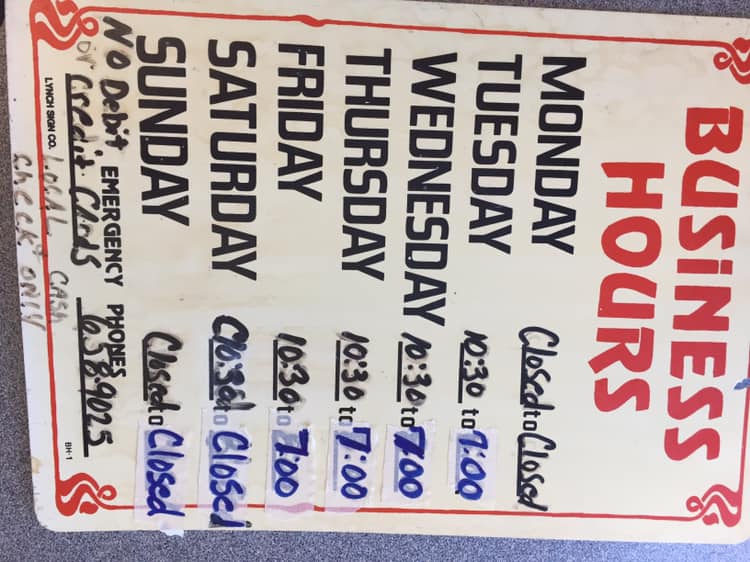 BUSINESS
HOURS
MONDAY Closed to Closed
TUESDAY 10:30 to 7:00
WEDNESDAY 10:30 to 7:00
THURSDAY 10:30 to 7:00
FRIDAY 10:30 to 7:00
SATURDAY Closed to Closed
SUNDAY Closed to Closed
NO Debit EMERGENCY PHONES
or Credit Cards 6389025
LYNCH SIGN CO. BH-1
LOCAL CASH
CHECK ONLY